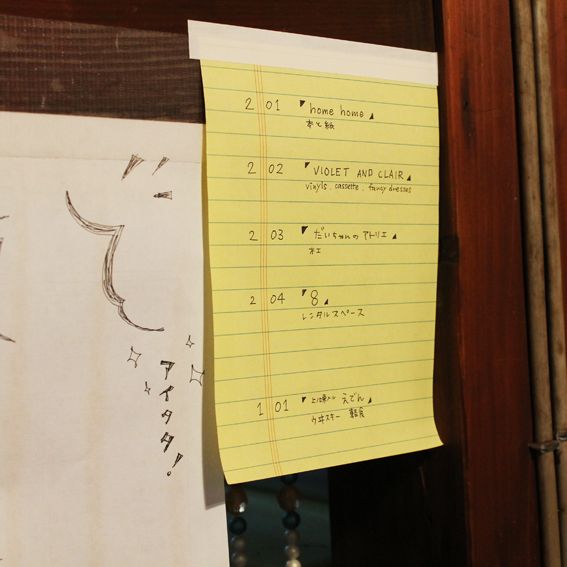 2 01 「home home」
本と紙
2 02 「VIOLET AND CLAIR」
vinyls. cassette. fancy dresses
2 03 「だいちゃんのアトリエ」
木工
2 04 「8」
レンタルスペース
1 01 「えでん」
ウヰスキー 軽食
アイタタ!